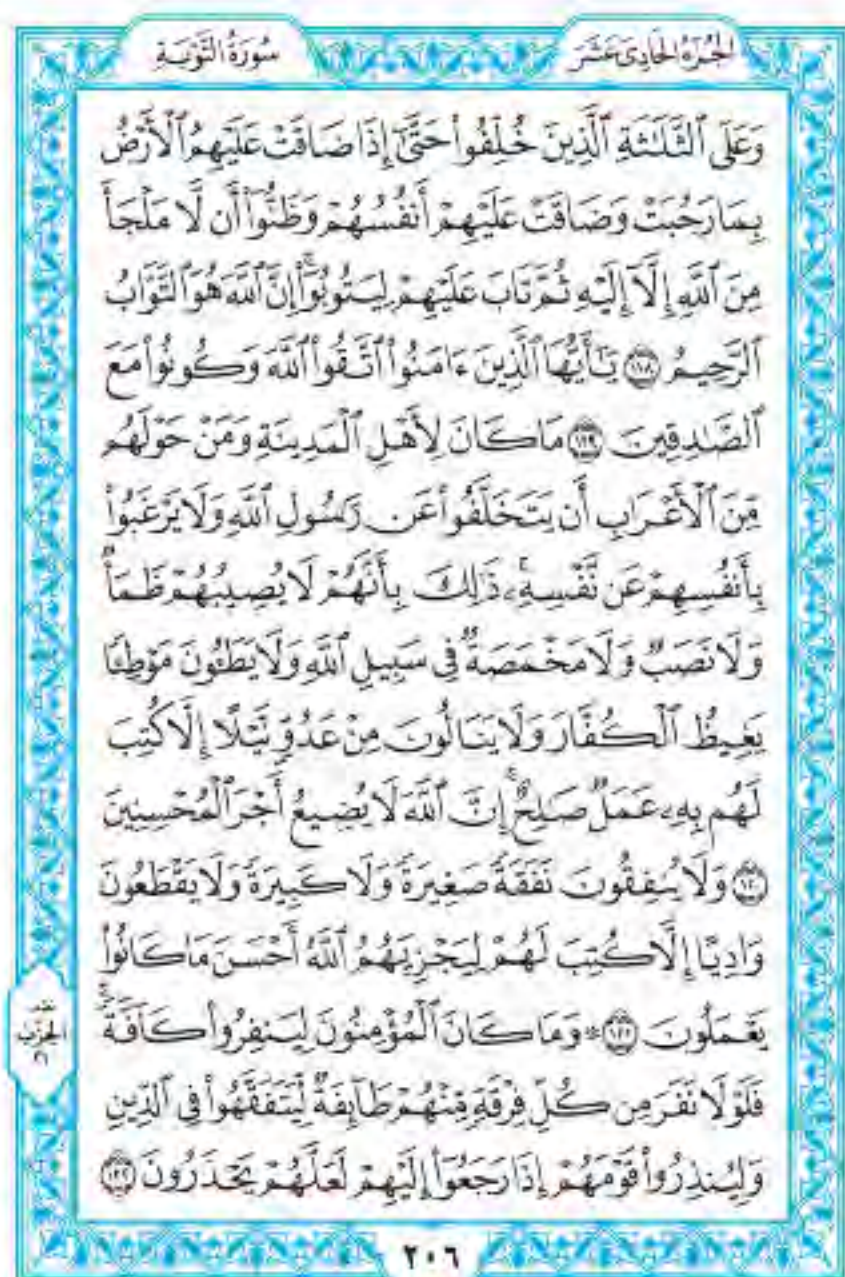 الجُزْءُ الحَادِيَ عَشَرَ
سُورَةُ التَّوْبَةِ
وَعَلَى ٱلثَّلَـٰثَةِ ٱلَّذِينَ خُلِّفُوا۟ حَتَّىٰٓ إِذَا ضَاقَتْ عَلَيْهِمُ ٱلْأَرْضُ
بِمَا رَحُبَتْ وَضَاقَتْ عَلَيْهِمْ أَنفُسُهُمْ وَظَنُّوٓا۟ أَن لَّا مَلْجَأَ
مِنَ ٱللَّهِ إِلَّآ إِلَيْهِ ثُمَّ تَابَ عَلَيْهِمْ لِيَتُوبُوٓا۟ۚ إِنَّ ٱللَّهَ هُوَ ٱلتَّوَّابُ
ٱلرَّحِيمُ ١١٨ يَـٰٓأَيُّهَا ٱلَّذِينَ ءَامَنُوا۟ ٱتَّقُوا۟ ٱللَّهَ وَكُونُوا۟ مَعَ
ٱلصَّـٰدِقِينَ ١١٩ مَا كَانَ لِأَهْلِ ٱلْمَدِينَةِ وَمَنْ حَوْلَهُم
مِّنَ ٱلْأَعْرَابِ أَن يَتَخَلَّفُوا۟ عَن رَّسُولِ ٱللَّهِ وَلَا يَرْغَبُوا۟
بِأَنفُسِهِمْ عَن نَّفْسِهِۦۚ ذَٰلِكَ بِأَنَّهُمْ لَا يُصِيبُهُمْ ظَمَأٌ
وَلَا نَصَبٌ وَلَا مَخْمَصَةٌ فِى سَبِيلِ ٱللَّهِ وَلَا يَطَـُٔونَ مَوْطِئًا
يَغِيظُ ٱلْكُفَّارَ وَلَا يَنَالُونَ مِنْ عَدُوٍّ نَّيْلًا إِلَّا كُتِبَ
لَهُم بِهِۦ عَمَلٌ صَـٰلِحٌۚ إِنَّ ٱللَّهَ لَا يُضِيعُ أَجْرَ ٱلْمُحْسِنِينَ
١٢٠ وَلَا يُنفِقُونَ نَفَقَةً صَغِيرَةً وَلَا كَبِيرَةً وَلَا يَقْطَعُونَ
وَادِيًا إِلَّا كُتِبَ لَهُمْ لِيَجْزِيَهُمُ ٱللَّهُ أَحْسَنَ مَا كَانُوا۟
يَعْمَلُونَ ١٢١ ۞ وَمَا كَانَ ٱلْمُؤْمِنُونَ لِيَنفِرُوا۟ كَآفَّةًۚ
فَلَوْلَا نَفَرَ مِن كُلِّ فِرْقَةٍ مِّنْهُمْ طَآئِفَةٌ لِّيَتَفَقَّهُوا۟ فِى ٱلدِّينِ
وَلِيُنذِرُوا۟ قَوْمَهُمْ إِذَا رَجَعُوٓا۟ إِلَيْهِمْ لَعَلَّهُمْ يَحْذَرُونَ ١٢٢
الحِزْبِ
٢١
٢٠٦